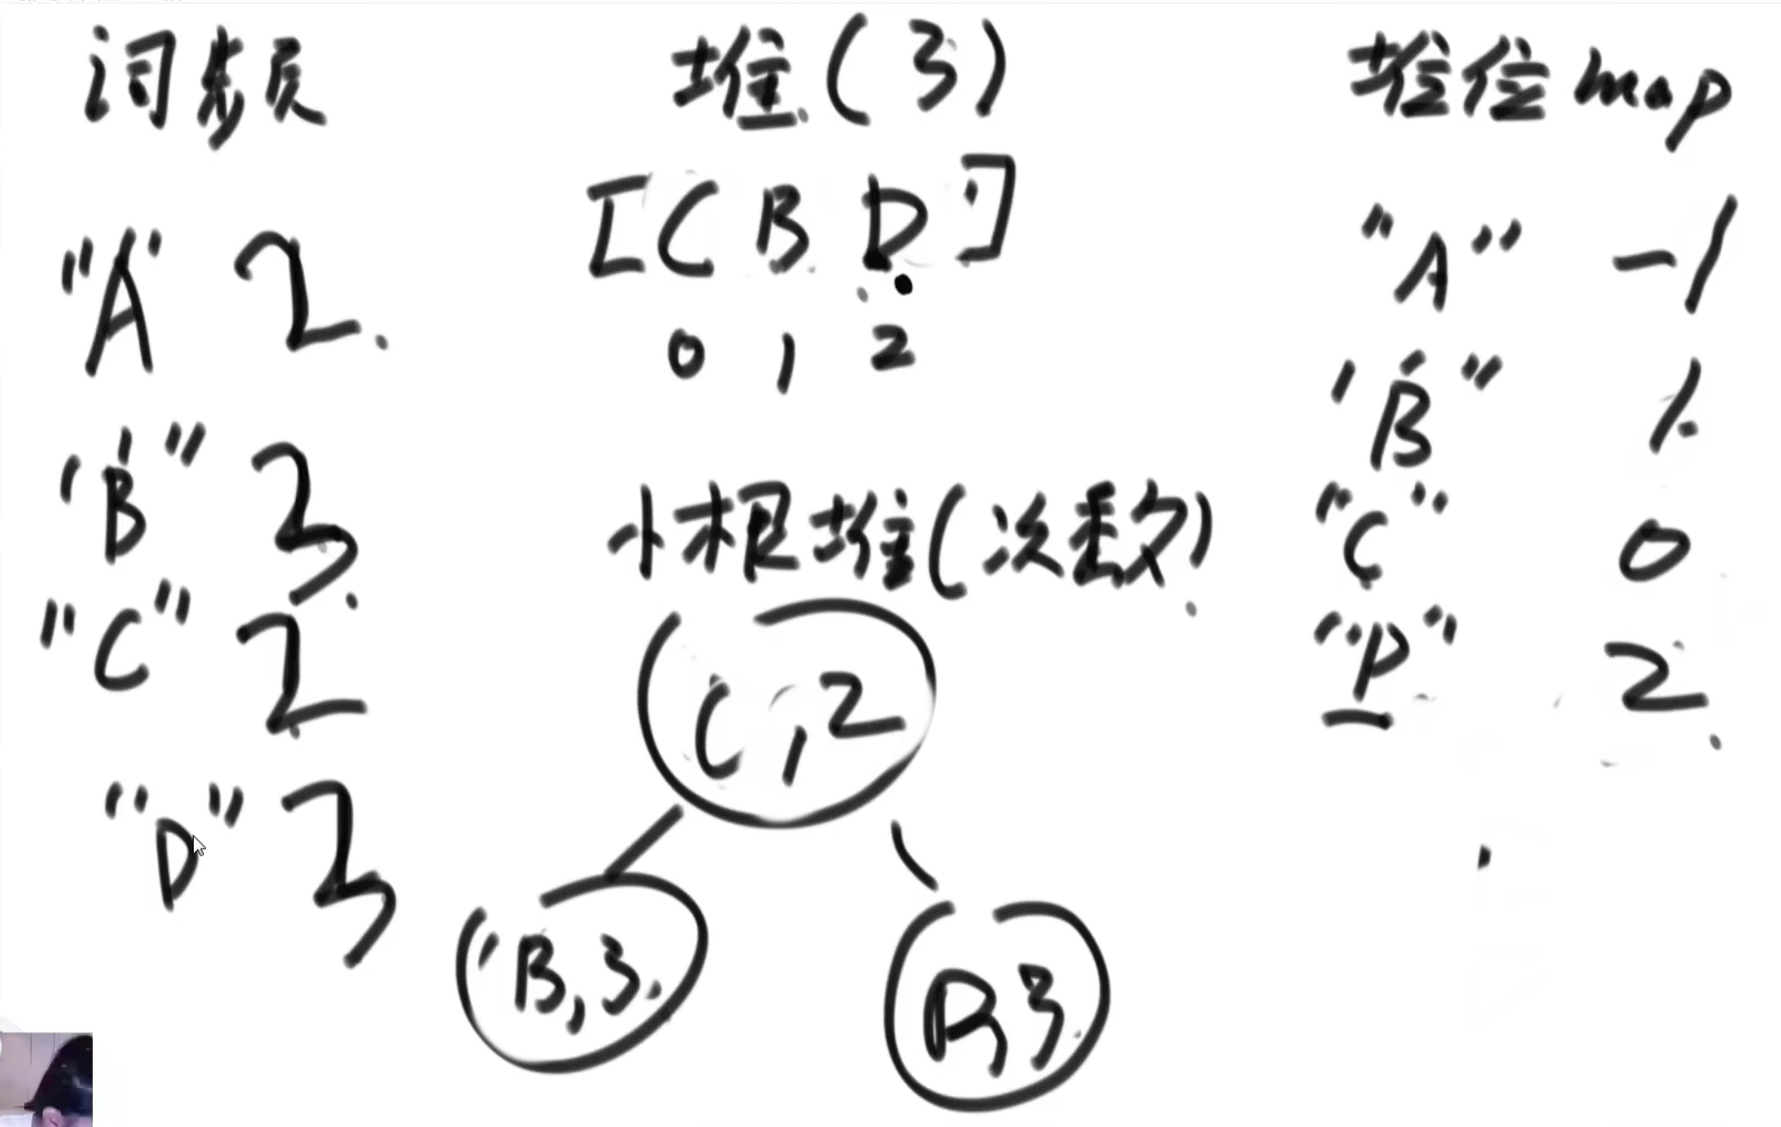 词频
"A" 2
'B" 3
"C" 2
"D" 3
堆(3)
[C B D]
0 1 2
小根堆(次数)
C,2
B,3
D,3
堆位map
"A" -1
'B" 1
"C" 0
"D" 2